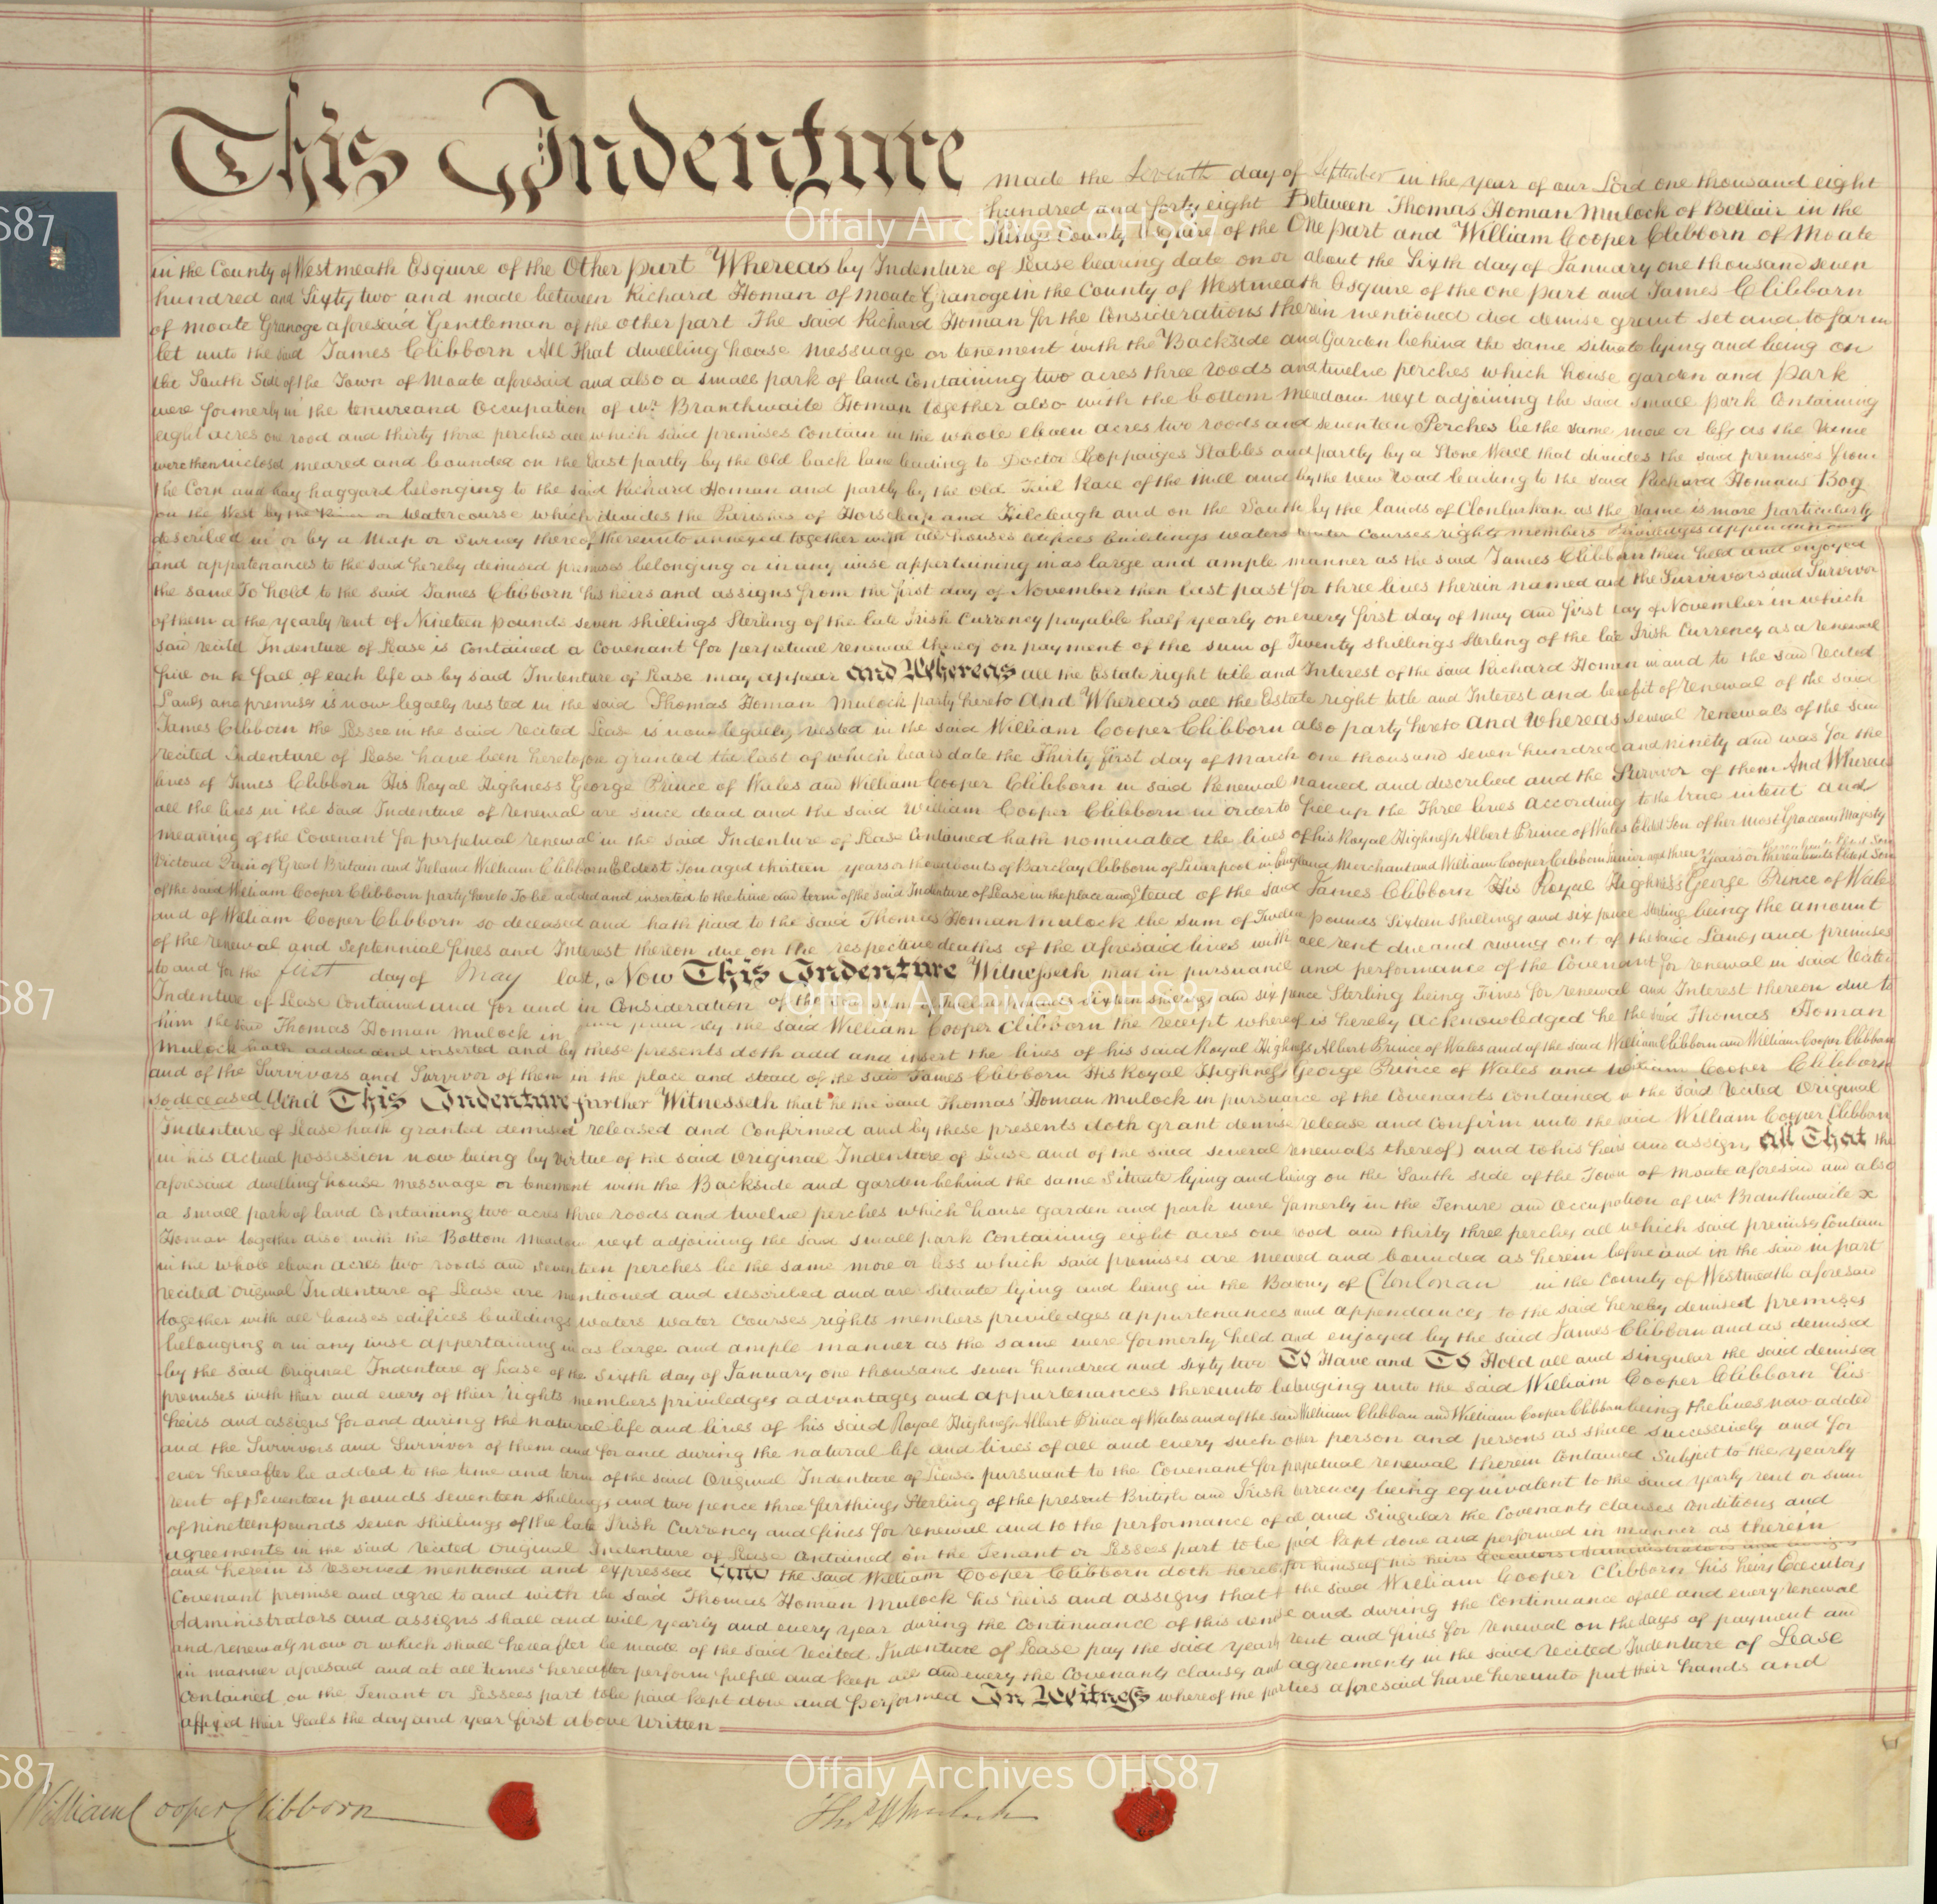 This Indenture made the Seventh day of September in the Year of our Lord one thousand eight
hundred and forty eight Between Thomas Homan Mulock of Bellair in the
Kings County Esquire of the One part and William Cooper Clibborn of Moate
in the County of Westmeath Esquire of the Other part Whereas by Indenture of Lease bearing date on or about the Sixth day of January one thousand seven
hundred and Sixty two and made between Richard Homan of Moate Granoge in the County of Westmeath Esquire of the one part and James Clibborn
of Moate Granoge aforesaid Gentleman of the other part The said Richard Homan for the Considerations therein mentioned did demise grant set and to farm
let unto the said James Clibborn All That dwelling house Messuage or tenement with the Backside and Garden behind the same situate lying and being on
the South Side of the Town of Moate aforesaid and also a small park of land Containing two acres three roods and twelve perches which house garden and Park
were formerly in the tenure and Occupation of Mr. Branthwaite Homan together also with the bottom Meadow next adjoining the said small park Containing
eight acres one rood and thirty three perches all which said premises Contain in the whole eleven acres two roods and seventeen Perches be the same more or less as the same
were then inclosed meared and bounded on the East partly by the Old back lane leading to Doctor Coppaiges Stables and partly by a Stone Wall that divides the said premises from
the Corn and hay haggard belonging to the said Richard Homan and partly by the Old Tail Race of the Mill and by the new road leading to the said Richard Homans Bog
on the West by the or Watercourse which divides the Parishes of Horseleap and Kilcleagh and on the South by the lands of Clonlurkan as the same is more particularly
described in or by a Map or Survey thereof thereunto annexed together with all houses edifices buildings waters water Courses rights members priviledges appendances
and appurtenances to the said hereby demised premises belonging or in any wise appertaining in as large and ample manner as the said James Clibborn then held and enjoyed
the same To hold to the said James Clibborn his heirs and assigns from the first day of November then last past for three lives therein named and the Survivors and Survivor
of them at the yearly rent of Nineteen pounds seven shillings Sterling of the late Irish Currency payable half yearly on every first day of May and first day of November in which
said recited Indenture of Lease is Contained a Covenant for perpetual renewal thereof on payment of the sum of Twenty shillings Sterling of the late Irish Currency as a renewal
fine on the fall of each life as by said Indenture of Lease may appear and Whereas all the Estate right title and Interest of the said Richard Homan in and to the said recited
Lands and premises is now legally vested in the said Thomas Homan Mulock party hereto And Whereas all the Estate right title and Interest and benefit of renewal of the said
James Clibborn the Lessee in the said recited Lease is now legally vested in the said William Cooper Clibborn also party hereto and Whereas several renewals of the said
recited Indenture of Lease have been heretofore granted the last of which bears date the Thirty first day of March one thousand seven hundred and ninety and was for the
lives of James Clibborn His Royal Highness George Prince of Wales and William Cooper Clibborn in said Renewal named and described and the Survivor of them And Whereas
all the lives in the said Indenture of renewal are since dead and the said William Cooper Clibborn in order to fill up the Three lives according to the true intent and
meaning of the Covenant for perpetual renewal in the said Indenture of Lease Contained hath nominated the lives of his Royal Highness Albert Prince of Wales Eldest Son of her Most Gracious Majesty
Victoria Queen of Great Britain and Ireland William Clibborn Eldest Son aged thirteen years or thereabouts of Barclay Clibborn of Liverpool in England Merchant and William Cooper Clibborn Junior aged three years or thereabouts Eldest Son
of the said William Cooper Clibborn party hereto To be added and inserted to the time and term of the said Indenture of Lease in the place and Stead of the said James Clibborn His Royal Highness George Prince of Wales
and of William Cooper Clibborn so deceased and hath paid to the said Thomas Homan Mulock the Sum of Twelve pounds Sixteen shillings and six pence Sterling being the amount
of the renewal and Septennial fines and Interest thereon due on the respective deaths of the aforesaid lives with all rent due and owing out of the said Lands and premises
to and for the first day of May last, Now This Indenture Witnesseth that in pursuance and performance of the Covenant for renewal in said recited
Indenture of Lease Contained and for and in Consideration of the said Sum of Twelve pounds sixteen shillings and six pence Sterling being Fines for renewal and Interest thereon due to
him the said Thomas Homan Mulock in paid by the said William Cooper Clibborn the receipt whereof is hereby acknowledged he the said Thomas Homan
Mulock hath added and inserted and by these presents doth add and insert the lives of his said Royal Highness Albert Prince of Wales and of the said William Clibborn and William Cooper Clibborn
and of the Survivors and Survivor of them in the place and stead of the said James Clibborn His Royal Highness George Prince of Wales and William Cooper Clibborn
so deceased And This Indenture further Witnesseth that he the said Thomas Homan Mulock in pursuance of the Covenants contained in the said recited Original
Indenture of Lease hath granted demised released and Confirmed and by these presents doth grant demise release and Confirm unto the said William Cooper Clibborn
in his actual possession now being by Virtue of the said Original Indenture of Lease and of the said several renewals thereof) and to his heirs and assigns all That the
aforesaid dwelling house messuage or tenement with the Backside and garden behind the same Situate lying and being on the South side of the Town of Moate aforesaid and also
a small park of land Containing two acres three roods and twelve perches which house garden and park were formerly in the Tenure and Occupation of Mr Branthwaite
Homan together also with the Bottom Meadow next adjoining the said small park Containing eight acres one rood and thirty three perches all which said premises Contain
in the whole eleven acres two roods and seventeen perches be the same more or less which said premises are meared and bounded as herein before and in the said in part
recited Original Indenture of Lease are mentioned and described and are situate lying and being in the Barony of Clonlonan in the County of Westmeath aforesaid
together with all houses edifices buildings waters water Courses rights members priviledges appurtenances and appendances to the said hereby demised premises
belonging or in any wise appertaining in as large and ample manner as the same were formerly held and enjoyed by the said James Clibborn and as demised
by the said Original Indenture of Lease of the Sixth day of January one thousand seven hundred and sixty two To Have and To Hold all and singular the said demised
premises with their and every of their rights members priviledges advantages and appurtenances thereunto belonging unto the said William Cooper Clibborn his
heirs and assigns for and during the natural life and lives of his said Royal Highness Albert Prince of Wales and of the said William Clibborn and William Cooper Clibborn being the lives now added
and the Survivors and Survivor of them and for and during the natural life and lives of all and every such other person and persons as shall successively and for
ever hereafter be added to the time and term of the said Original Indenture of Lease pursuant to the Covenant for perpetual renewal therein Contained Subject to the yearly
rent of Seventeen pounds seventeen shillings and two pence three farthings Sterling of the present British and Irish Currency being equivalent to the said yearly rent or sum
of nineteen pounds seven shillings of the late Irish Currency and fines for renewal and to the performance of all and Singular the Covenants clauses Conditions and
agreements in the said recited original Indenture of Lease contained on the Tenant or Lessees part to be paid kept done and performed in manner as therein
and herein is reserved mentioned and expressed And the said William Cooper Clibborn doth hereby for himself his heirs Executors Administrators and assigns
Covenant promise and agree to and with the said Thomas Homan Mulock his heirs and assigns that the said William Cooper Clibborn his heirs Executors
Administrators and assigns shall and will yearly and every year during the Continuance of this demise and during the Continuance of all and every renewal
and renewals now or which shall hereafter be made of the said recited Indenture of Lease pay the said yearly rent and fines for renewal on the days of payment and
in manner aforesaid and at all times hereafter perform fulfill and keep all and every the Covenants clauses and agreements in the said recited Indenture of Lease
contained on the Tenant or Lessees part to be paid kept done and performed In Witness whereof the parties aforesaid have hereunto put their hands and
affixed their Seals the day and year first above Written
William Cooper Clibborn
Thos H Mulock
Offaly Archives OHS87
Offaly Archives OHS87
Offaly Archives OHS87
S87
S87
S87